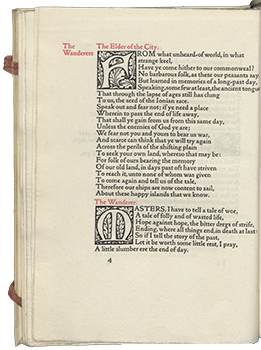 The Wanderers
The Elder of the City.
FROM what unheard-of world, in what
strange keel,
Have ye come hither to our commonweal?
No barbarous folk, as these our peasants say,
But learned in memories of a long-past day,
Speaking, some few at least, the ancient tongue
That through the lapse of ages still has clung
To us, the seed of the Ionian race.
Speak out and fear not; if ye need a place
Wherein to pass the end of life away,
That shall ye gain from us from this same day,
Unless the enemies of God ye are;
We fear not you and yours to bear us war,
And scarce can think that ye will try again
Across the perils of the shifting plain
To seek your own land, whereso that may be:
For folk of ours bearing the memory
Of our old land, in days past oft have striven
To reach it, unto none of whom was given
To come again and tell us of the tale,
Therefore our ships are now content to sail,
About these happy islands that we know.
The Wanderer.
MASTERS, I have to tell a tale of woe,
A tale of folly and of wasted life,
Hope against hope, the bitter dregs of strife,
Ending, where all things end, in death at last:
So if I tell the story of the past,
Let it be worth some little rest, I pray,
A little slumber ere the end of day.
4